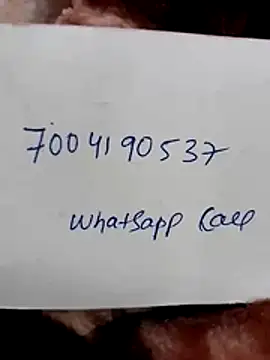 7004190537
Whatsapp Call